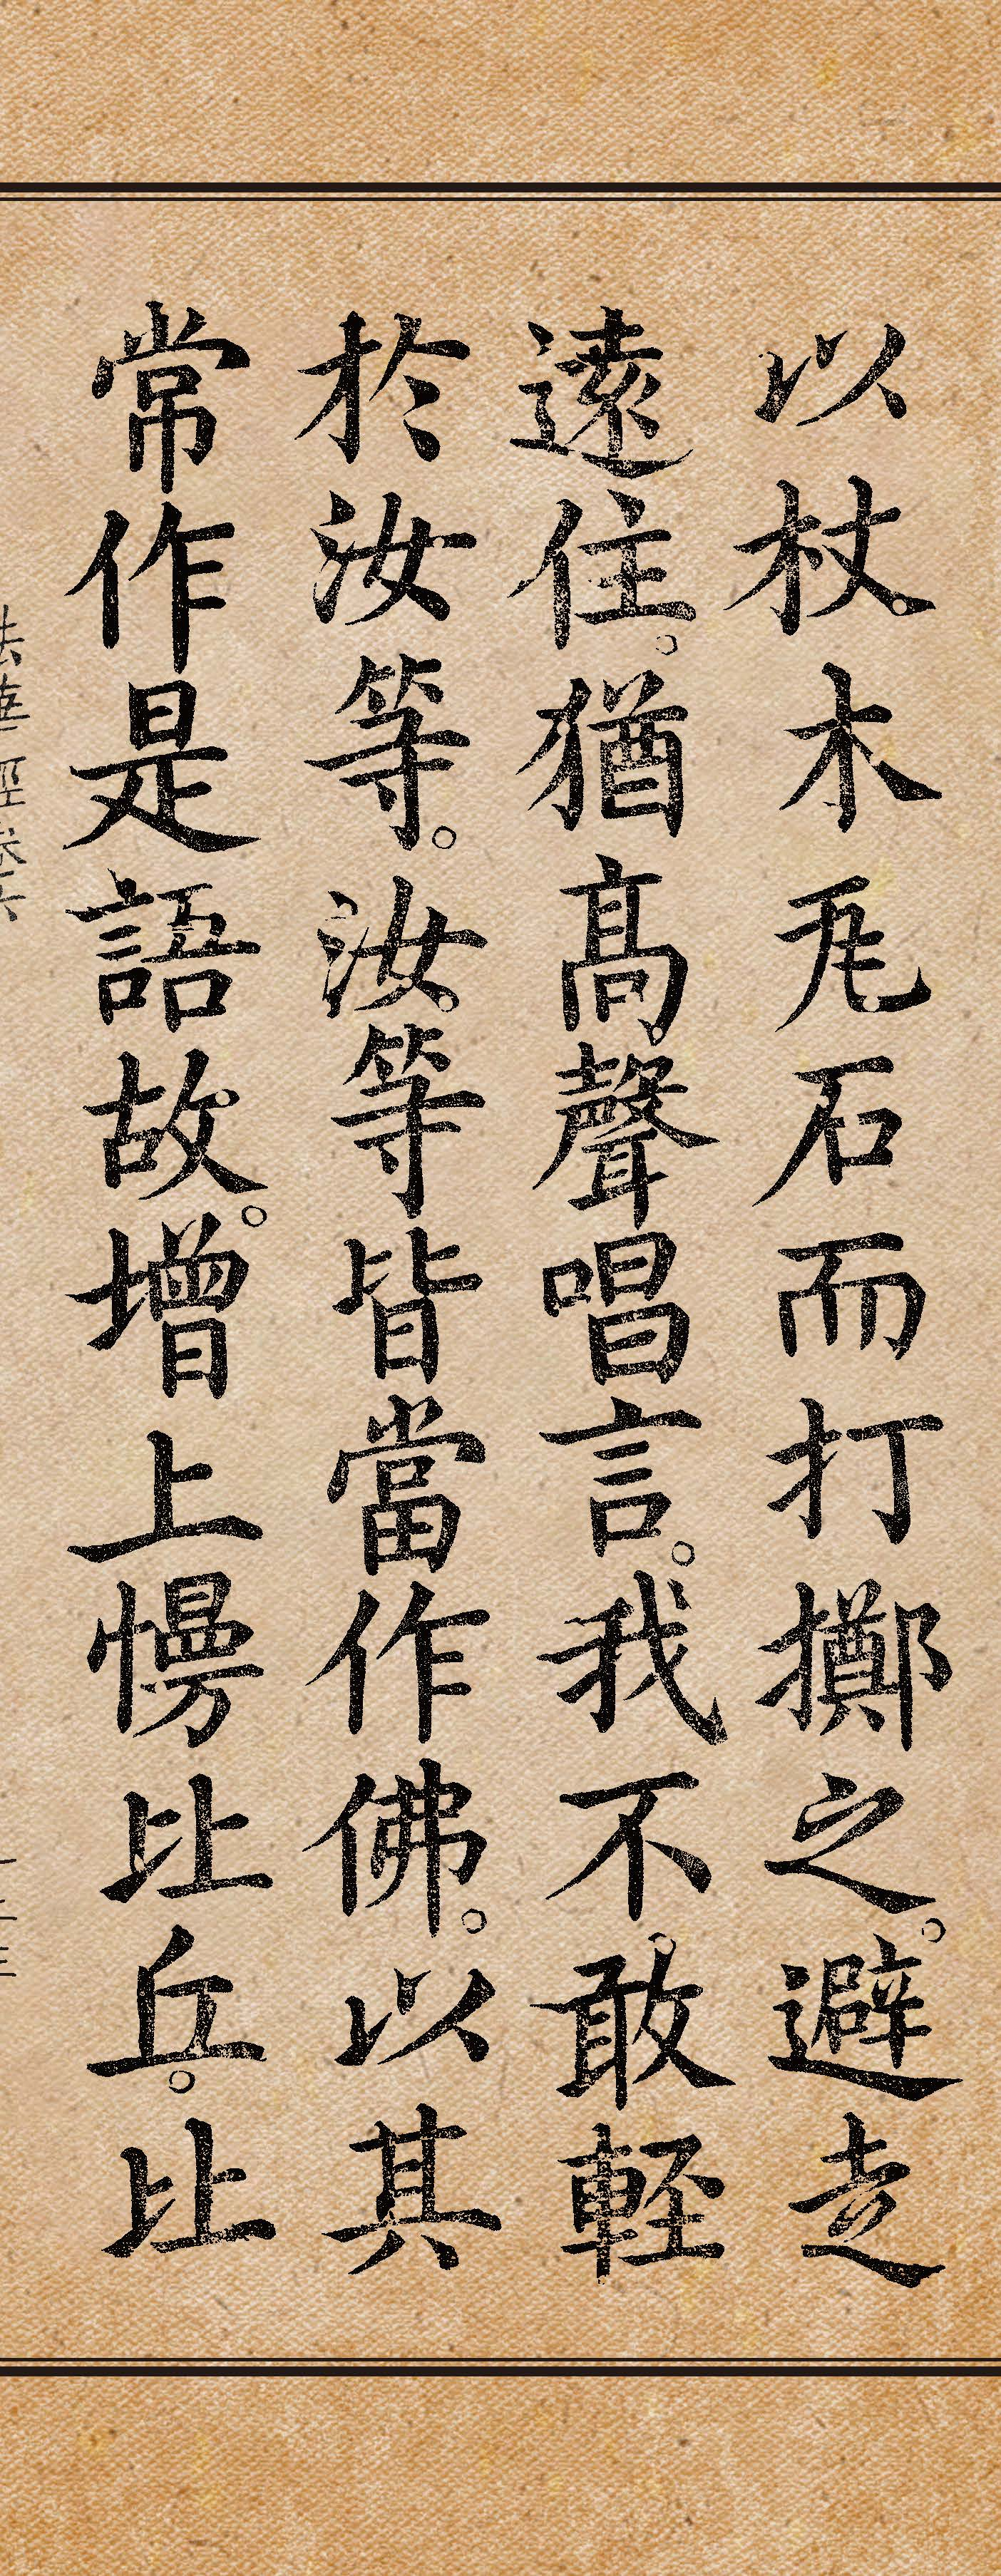 以杖木瓦石而打擲之。避走
遠住。猶髙聲唱言。我不敢輕
於汝等。汝等皆當作佛。以其
常作是語故。增上慢比丘。比
法華經卷六